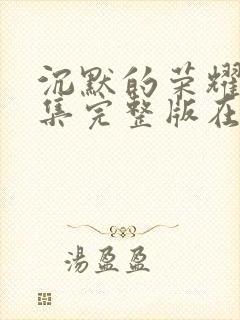 沉默的荣耀
集完整版在
湯盈盈